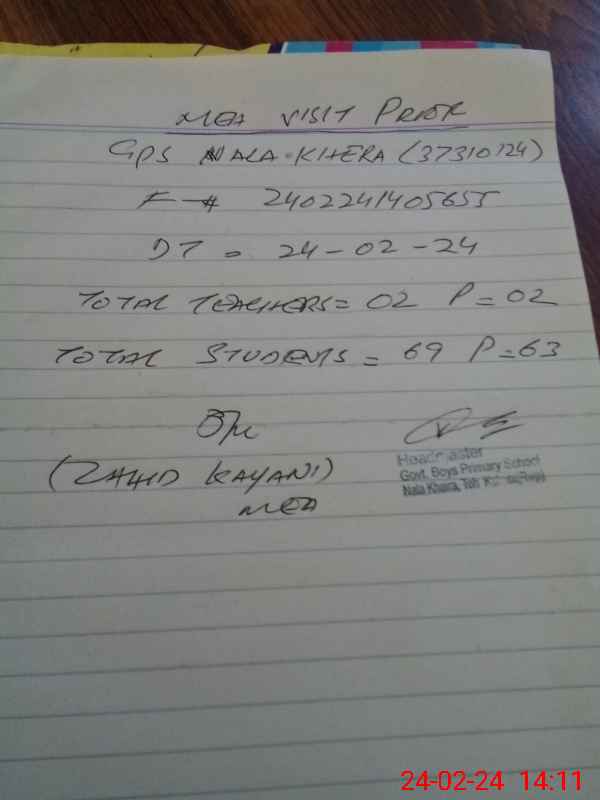 MEA VISIT PRIOR
GPS NALA-KHERA (37310124)
F-# 2402241405655
DT = 24-02-24
TOTAL TEACHERS = 02 P = 02
TOTAL STUDENTS = 69 P = 63
(ZAHID KAYANI)
MEA
Headmaster
Govt. Boys Primary School
Nala Khera, Teh
24-02-24 14:11